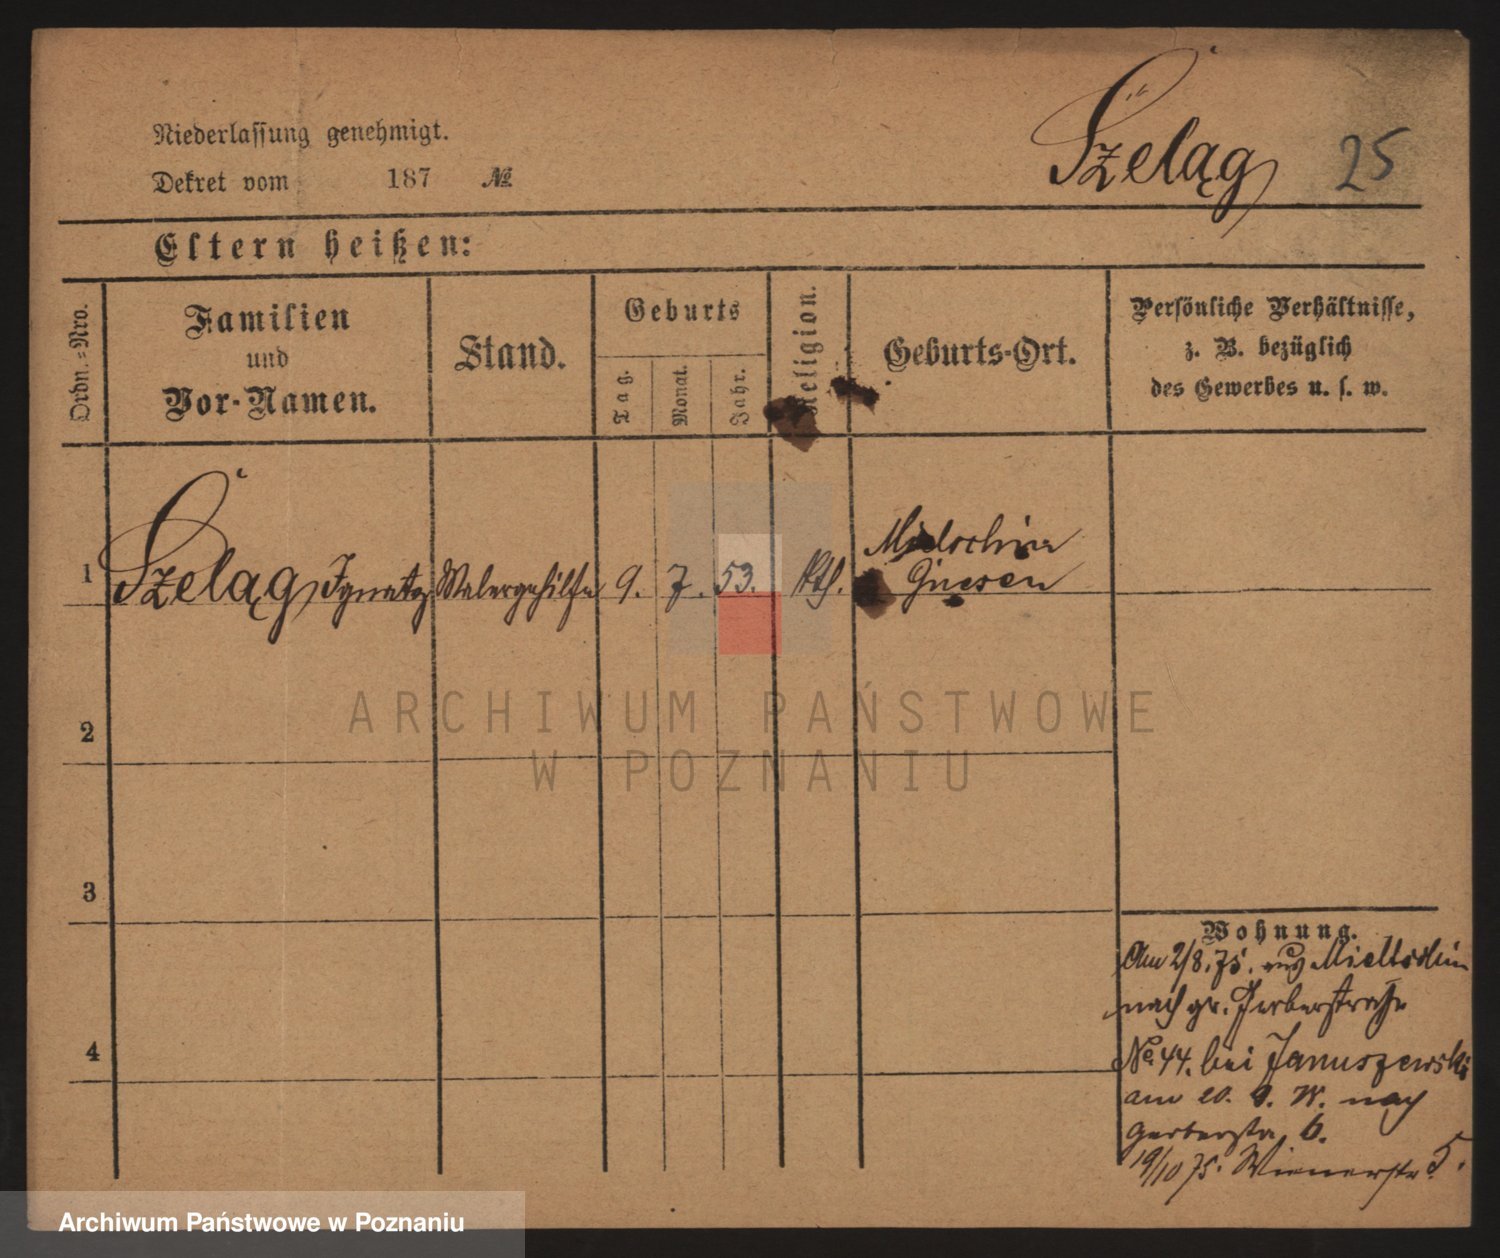 Szeląg 25
Niederlassung genehmigt.
Dekret vom 187 №
Eltern heißen:
Ordn.-Nro.
Familien
und
Vor-Namen.
Stand.
Geburts
Tag.
Monat.
Jahr.
Religion.
Geburts-Ort.
Persönliche Verhältnisse,
z. B. bezüglich
des Gewerbes u. s. w.
1 Szeląg Ignatz Malergehilfe 9. 7. 53. Kth.
Gnesen
2
3
4
Wohnung.
Am 2/8. 75. aus
nach gr. Gerberstraße
No. 44. bei Januszewski
am 20. 9. nach
Gerberstr. 6.
19/10 75. Wienerstr. 5.
ARCHIWUM PAŃSTWOWE
W POZNANIU
Archiwum Państwowe w Poznaniu